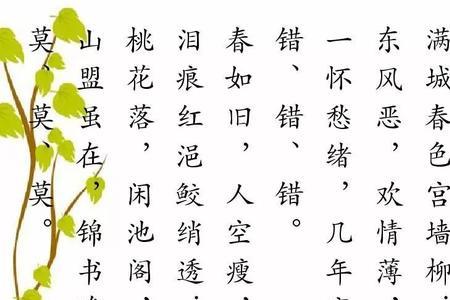 满城春色宫墙柳
东风恶，欢情薄，
一怀愁绪，几年
错、错、错。
春如旧，人空瘦，
泪痕红浥鲛绡透
桃花落，闲池阁，
山盟虽在，锦书
莫、莫、莫。